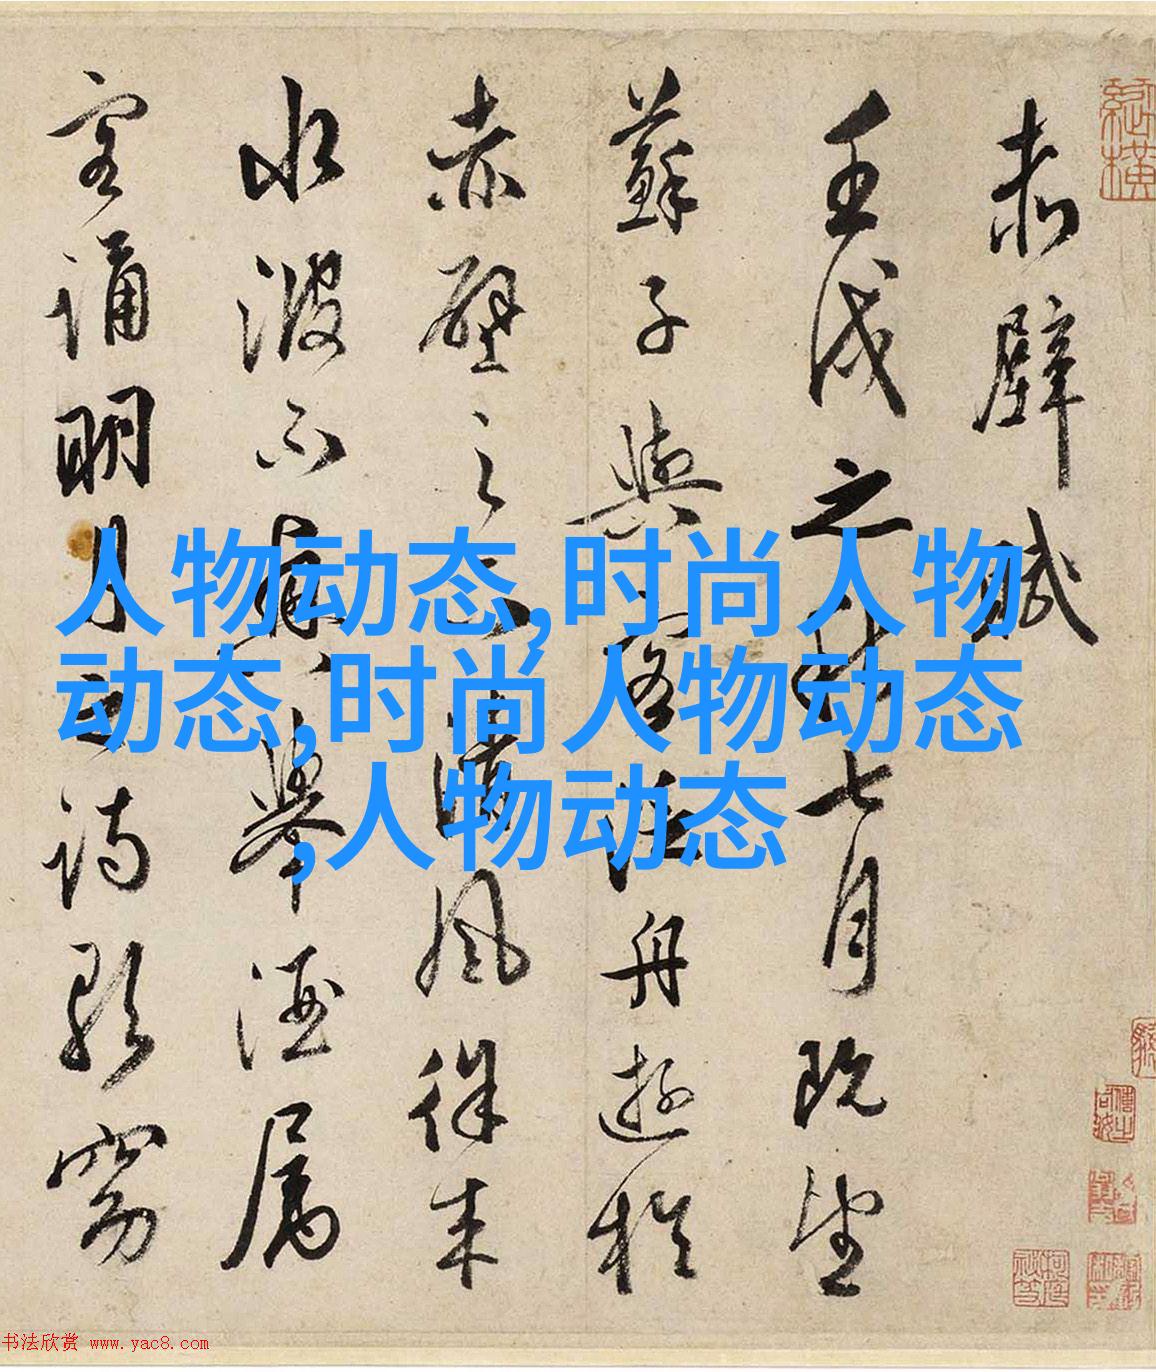 赤壁賦
壬戌之秋七月既望
蘇子與客泛舟遊於
赤壁之下清風徐来
水波不興舉酒屬
客誦明月之詩歌窈
人物动态,时尚人物
动态,时尚人物动态
,人物动态
书法欣赏 www.yac8.com